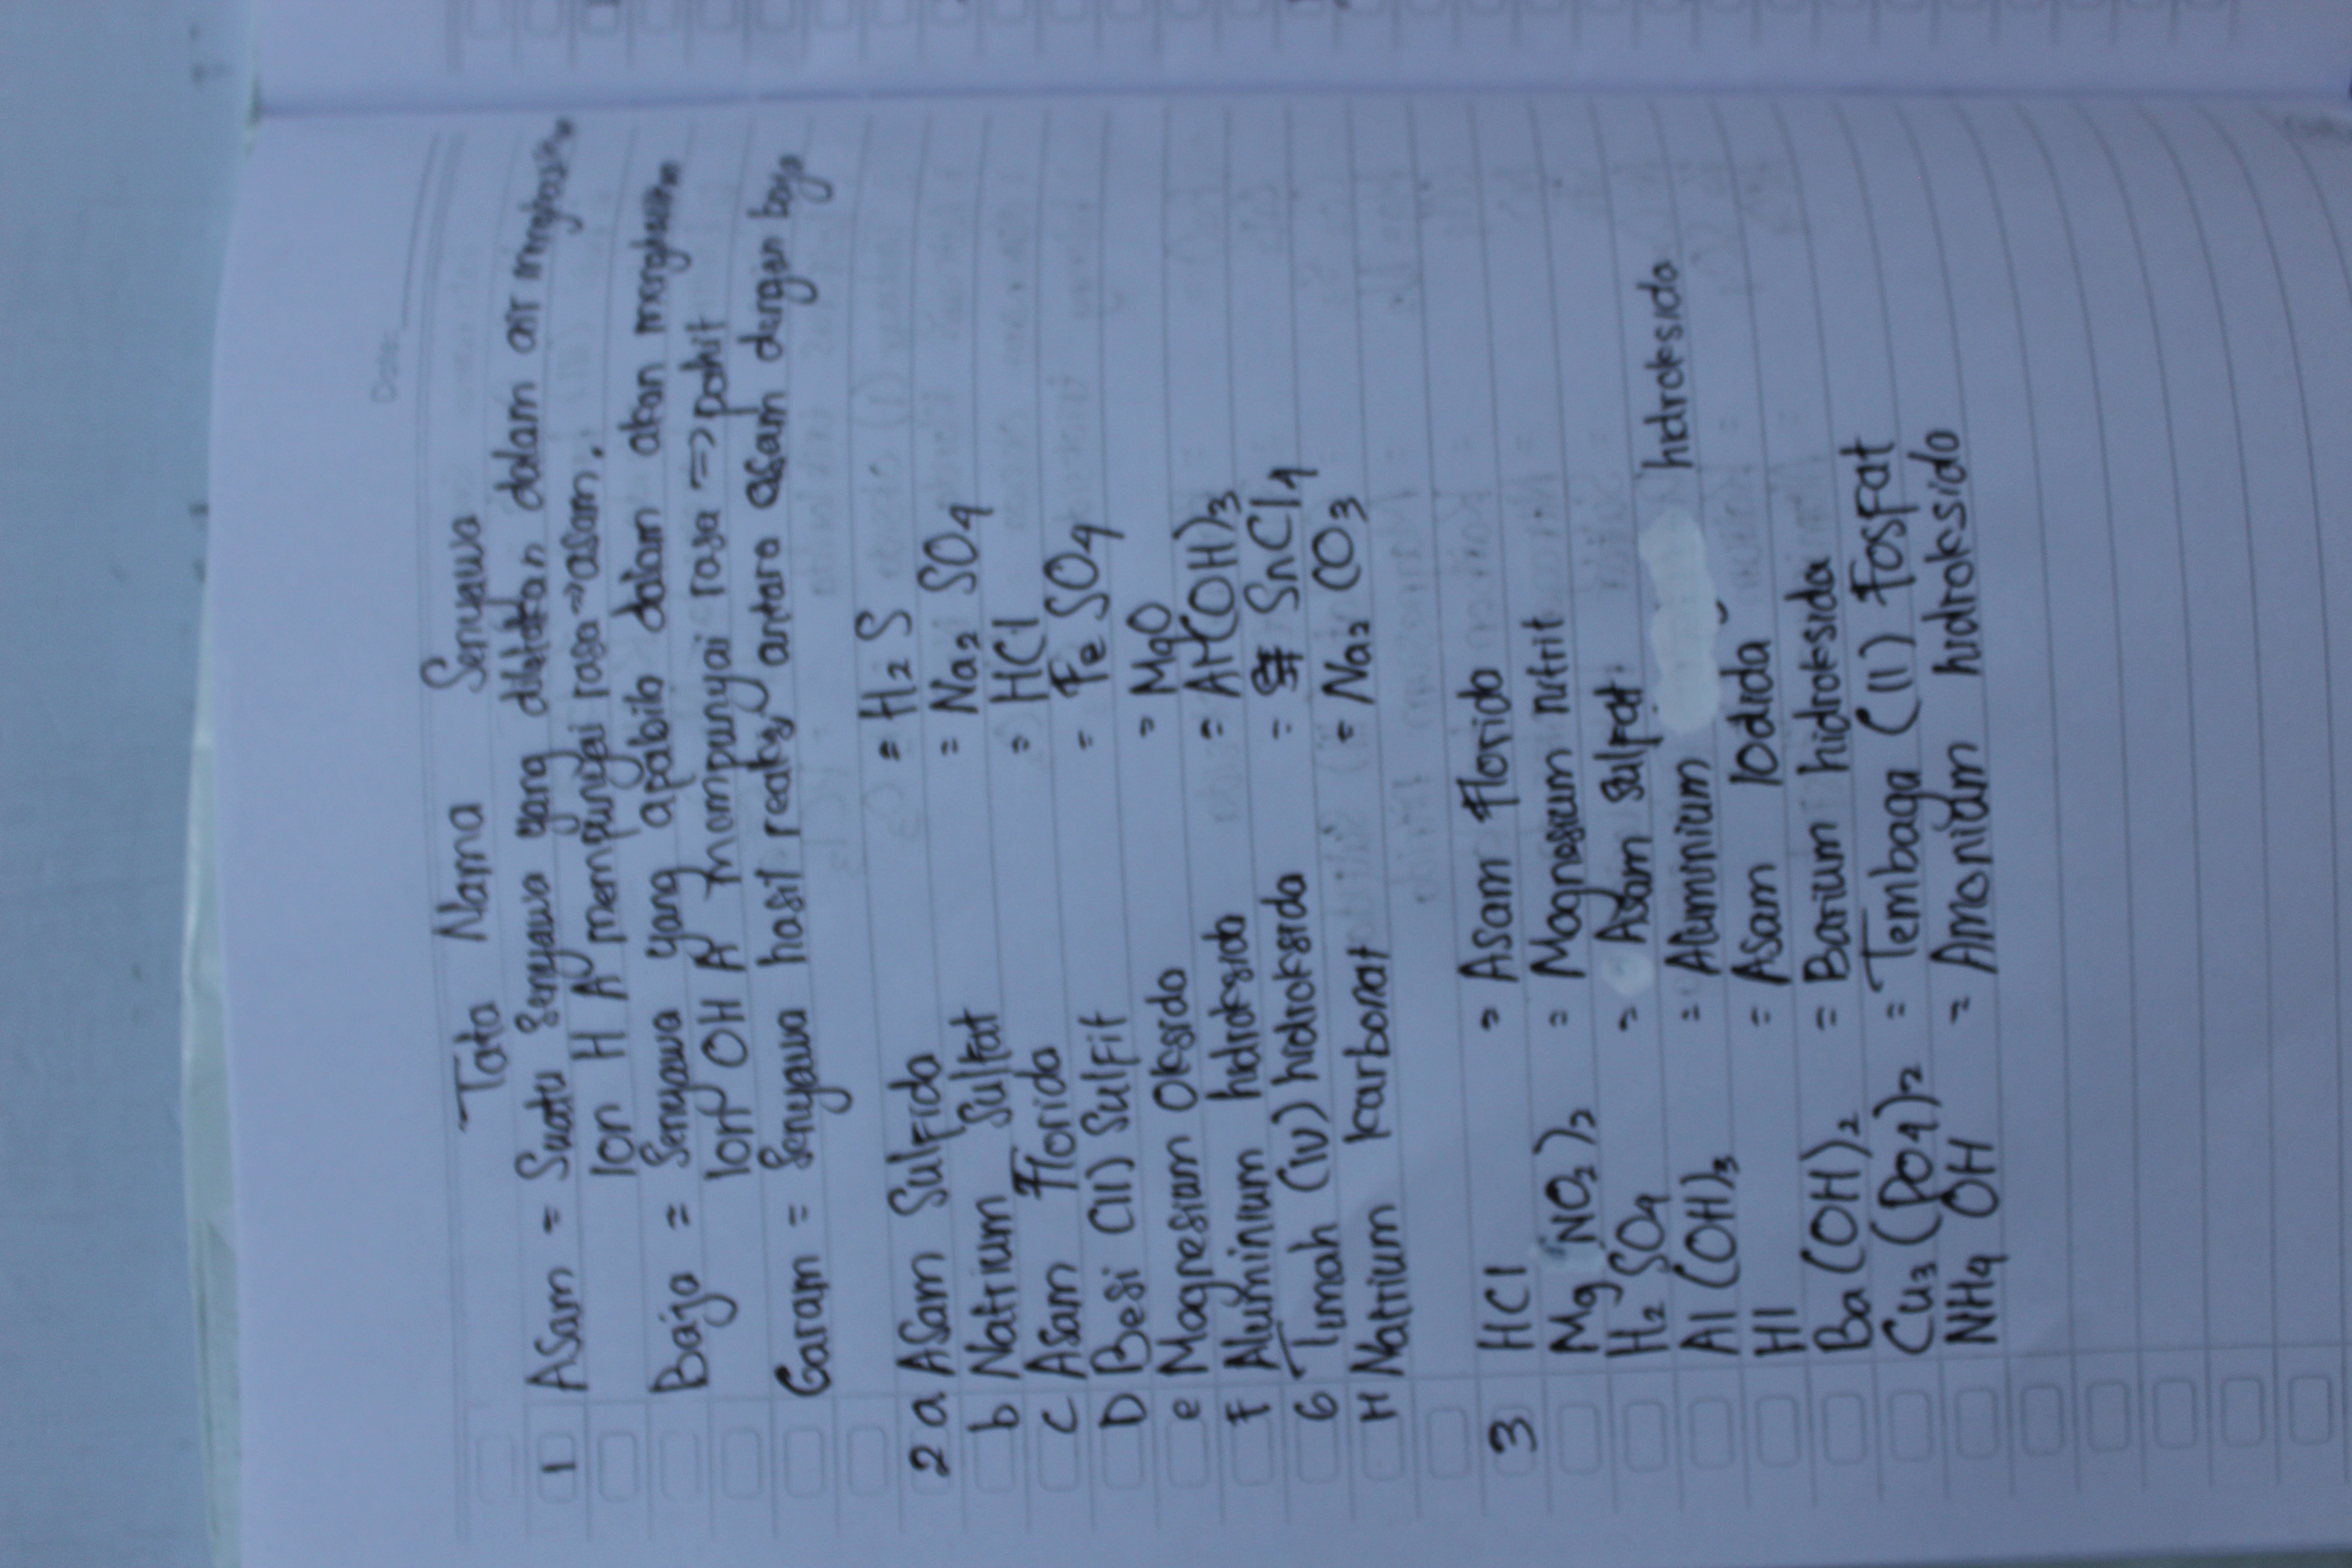 Date:
Tata Nama Senyawa
1 Asam = Suatu Senyawa yang diletakan dalam air
Ion H A mempunyai rasa → asam.
Baja = Senyawa yang apabila dalam akan
Ion OH A mempunyai rasa ⇒ pahit
Garam = Senyawa hasil reaksi antara asam dengan baja
2 a Asam Sulfida = H2 S
b Natrium Sulfat = Na2 SO4
c Asam Florida = HCl
D Besi (II) Sulfit = Fe SO4
e Magnesium Oksida = MgO
F Aluminium hidroksida = Al(OH)3
G Timah (IV) hidroksida = SnCl4
H Natrium karbonat = Na2 CO3
3 HCl = Asam Florida
Mg NO2)2 = Magnesium nitrit
H2 SO4 = Asam sulfat
Al (OH)3 = Aluminium hidroksida
HI = Asam Iodida
Ba (OH)2 = Barium hidroksida
Cu3 (PO4)2 = Tembaga (II) Fosfat
NH4 OH = Amonium hidroksida